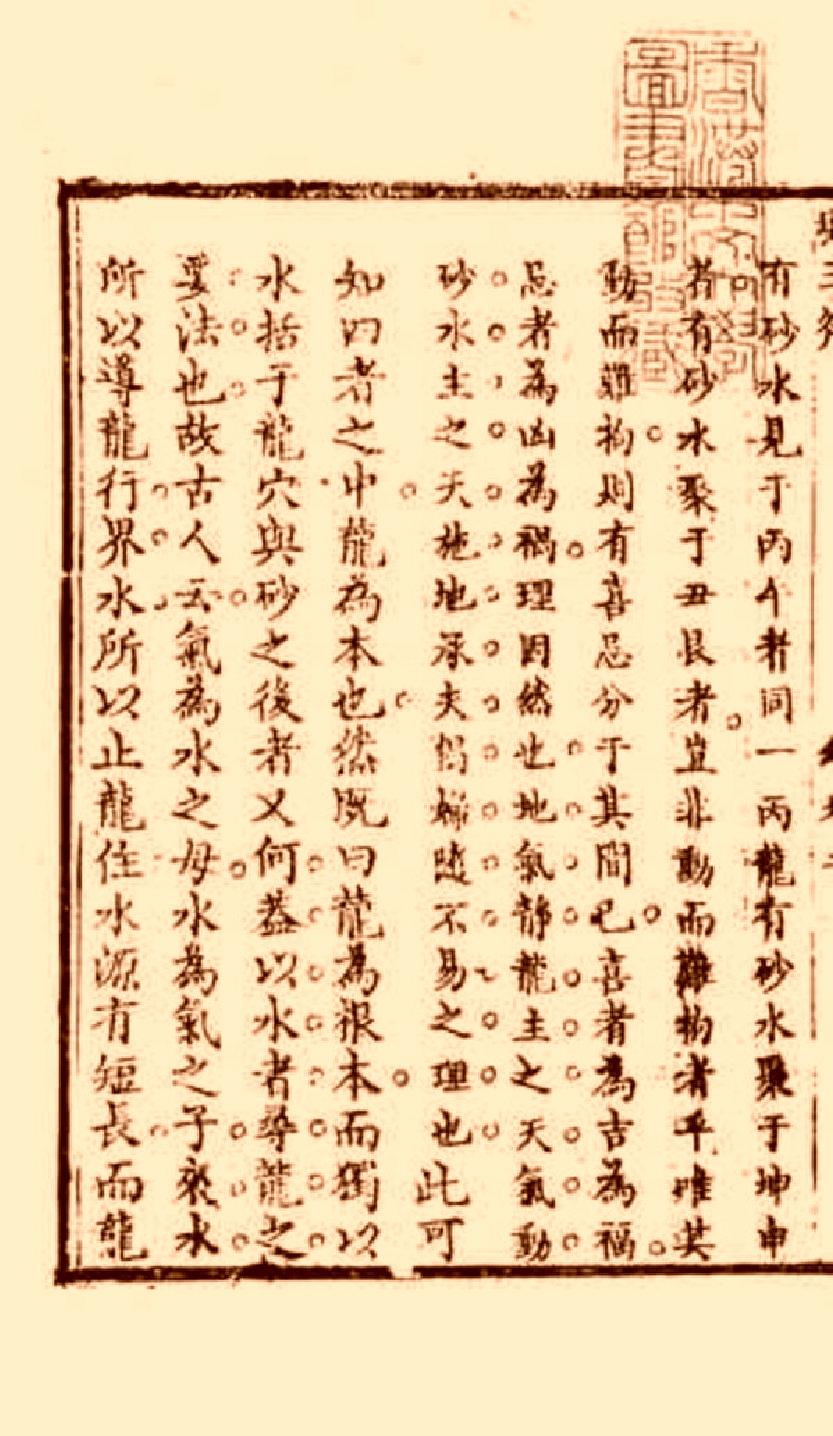 有砂水見于丙午者同一丙龍有砂水聚于坤申
者有砂水聚于丑艮者豈非動而難拘者乎唯其
動而難拘則有喜忌分于其間已喜者為吉為福
忌者為凶為禍理固然也地氣靜龍主之天氣動
砂水主之天施地承夫倡婦隨不易之理也此可
知四者之中龍為本也然既曰龍為根本而獨以
水括于龍穴與砂之後者又何葢以水者尋龍之
要法也故古人云氣為水之母水為氣之子衆水
所以導龍行界水所以止龍住水源有短長而龍